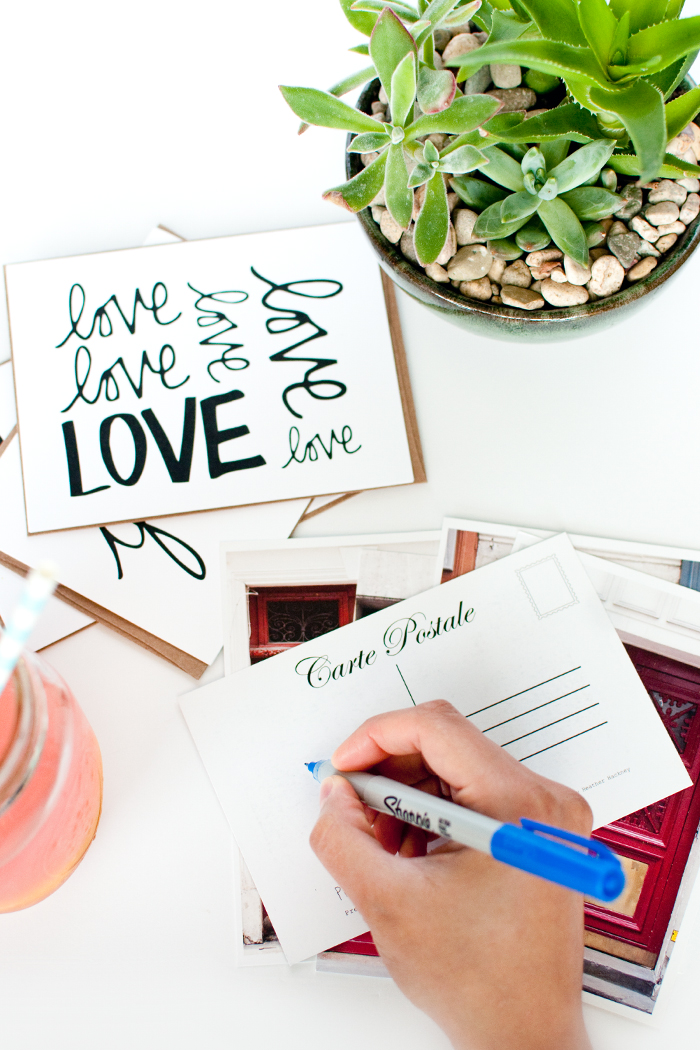 love
love
love
love
LOVE
love
Carte Postale
Sharpie